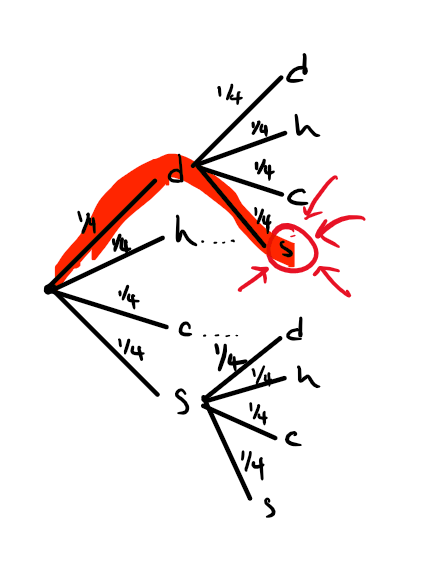 d
1/4
h
1/4
c
1/4
s
1/4
d
1/4
h....
1/4
c....
1/4
s
1/4
d
1/4
h
1/4
c
1/4
s
1/4